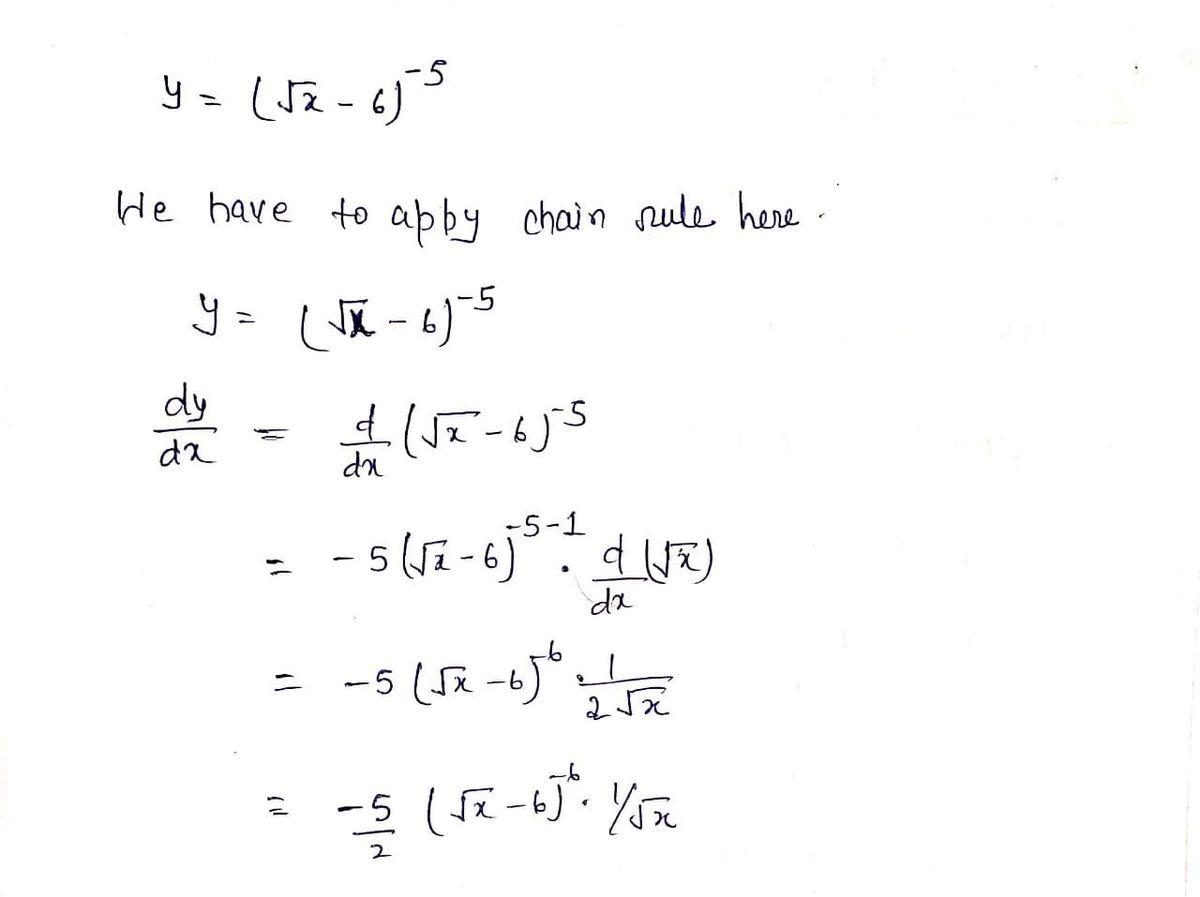 y = (√x - 6)^-5
We have to apply chain rule here.
y = (√x - 6)^-5
dy/dx = d/dx (√x - 6)^-5
= -5(√x - 6)^-5-1 . d/dx (√x)
= -5 (√x - 6)^-6 . 1/2√x
= -5/2 (√x - 6)^-6 . 1/√x